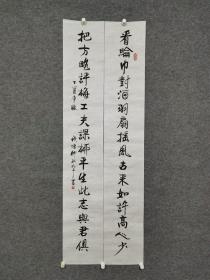 看綸巾對酒羽扇搖風古來如許高人少
把方略評梅工夫課柳平生此志與君俱